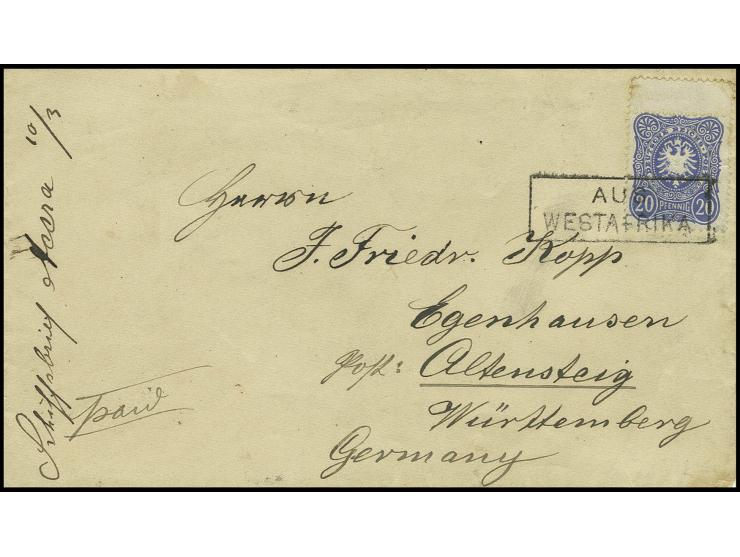 Schiffsbrief Accra 10/3
paid
Herrn
J. Friedr. Kopp
Egenhausen
Post: Altensteig
Württemberg
Germany
DEUTSCHE REICHS-POST
20 PFENNIG 20
AUS
WESTAFRIKA